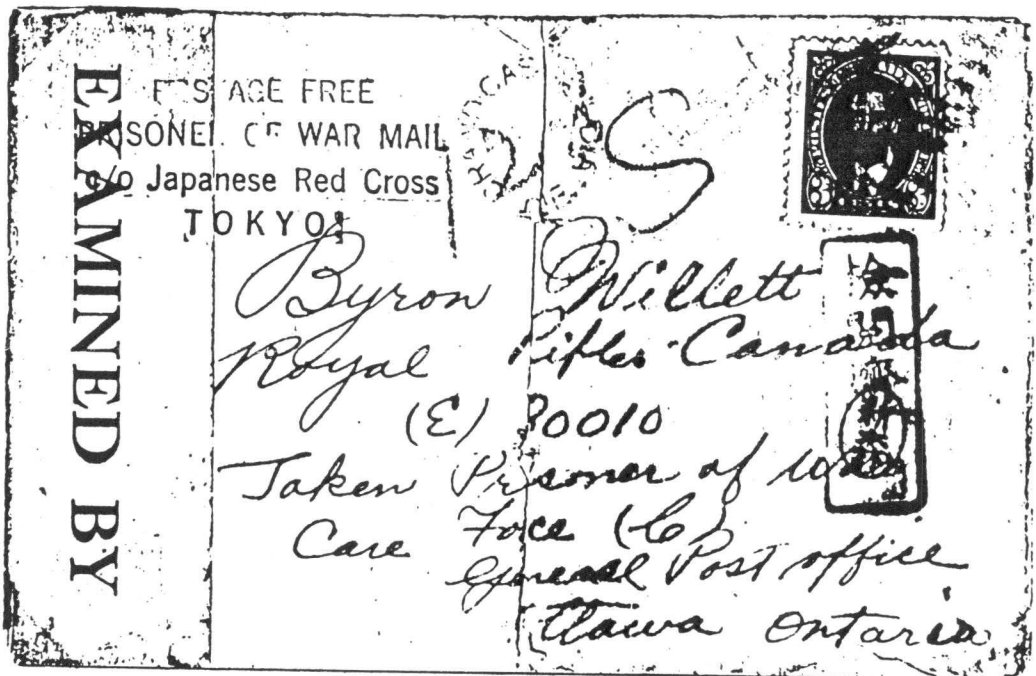 EXAMINED BY
POSTAGE FREE
PRISONER OF WAR MAIL
c/o Japanese Red Cross
TOKYO
S
Byron Willett
Royal Rifles Canada
(E) 30010
Taken Prisoner of War
Care Foce (C)
General Post office
Ottawa Ontario